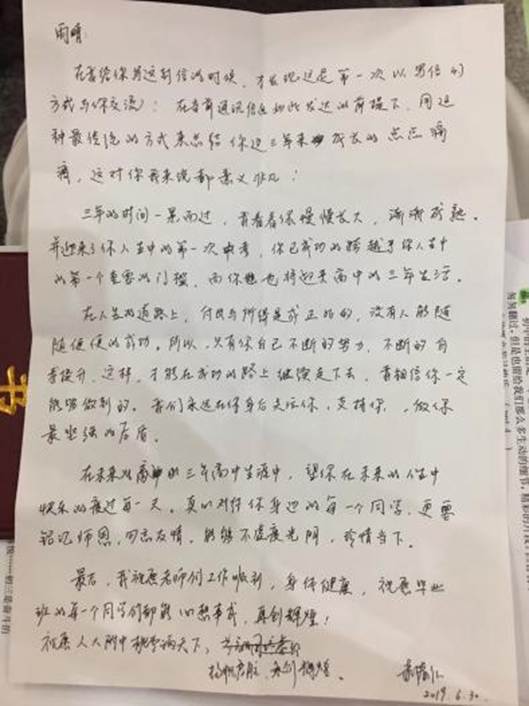 雨晴:
在爸给你写这封信的时候，才发现这是第一次以写信的
方式与你交流；在当前通讯信息如此发达的前提下，用这
种最传统的方式来总结你这三年来成长的点点滴
滴，这对你我来说都意义非凡！
三年的时间一晃而过，爸看着你慢慢长大，渐渐成熟。
并迎来了你人生中的第一次中考，你已成功的跨越了你人生中
的第一个重要的门槛，而你也将迎来高中的三年生活。
在人生的道路上，付出与所得是成正比的，没有人能随
随便便的成功。所以，只有你自己不断的努力，不断的自
我提升，这样，才能在成功的路上继续走下去，爸相信你一定
能够做到的。我们永远在你身后关心你，支持你，做你
最坚强的后盾。
在未来的高中的三年高中生涯中，望你在未来的人生中
快乐的度过每一天。真心对待你身边的每一个同学，更要
铭记师恩，同念友情。能够不虚度光阴，珍惜当下。
最后，我祝愿老师们工作顺利，身体健康，祝愿毕业
班的每一个同学们都能心想事成，再创辉煌！
祝愿人大附中桃李满天下，
扬帆启航，再创辉煌。
2019.6.30.
匆匆翻过，但是也留给我们那么多生动的细节，
初三是奋斗的